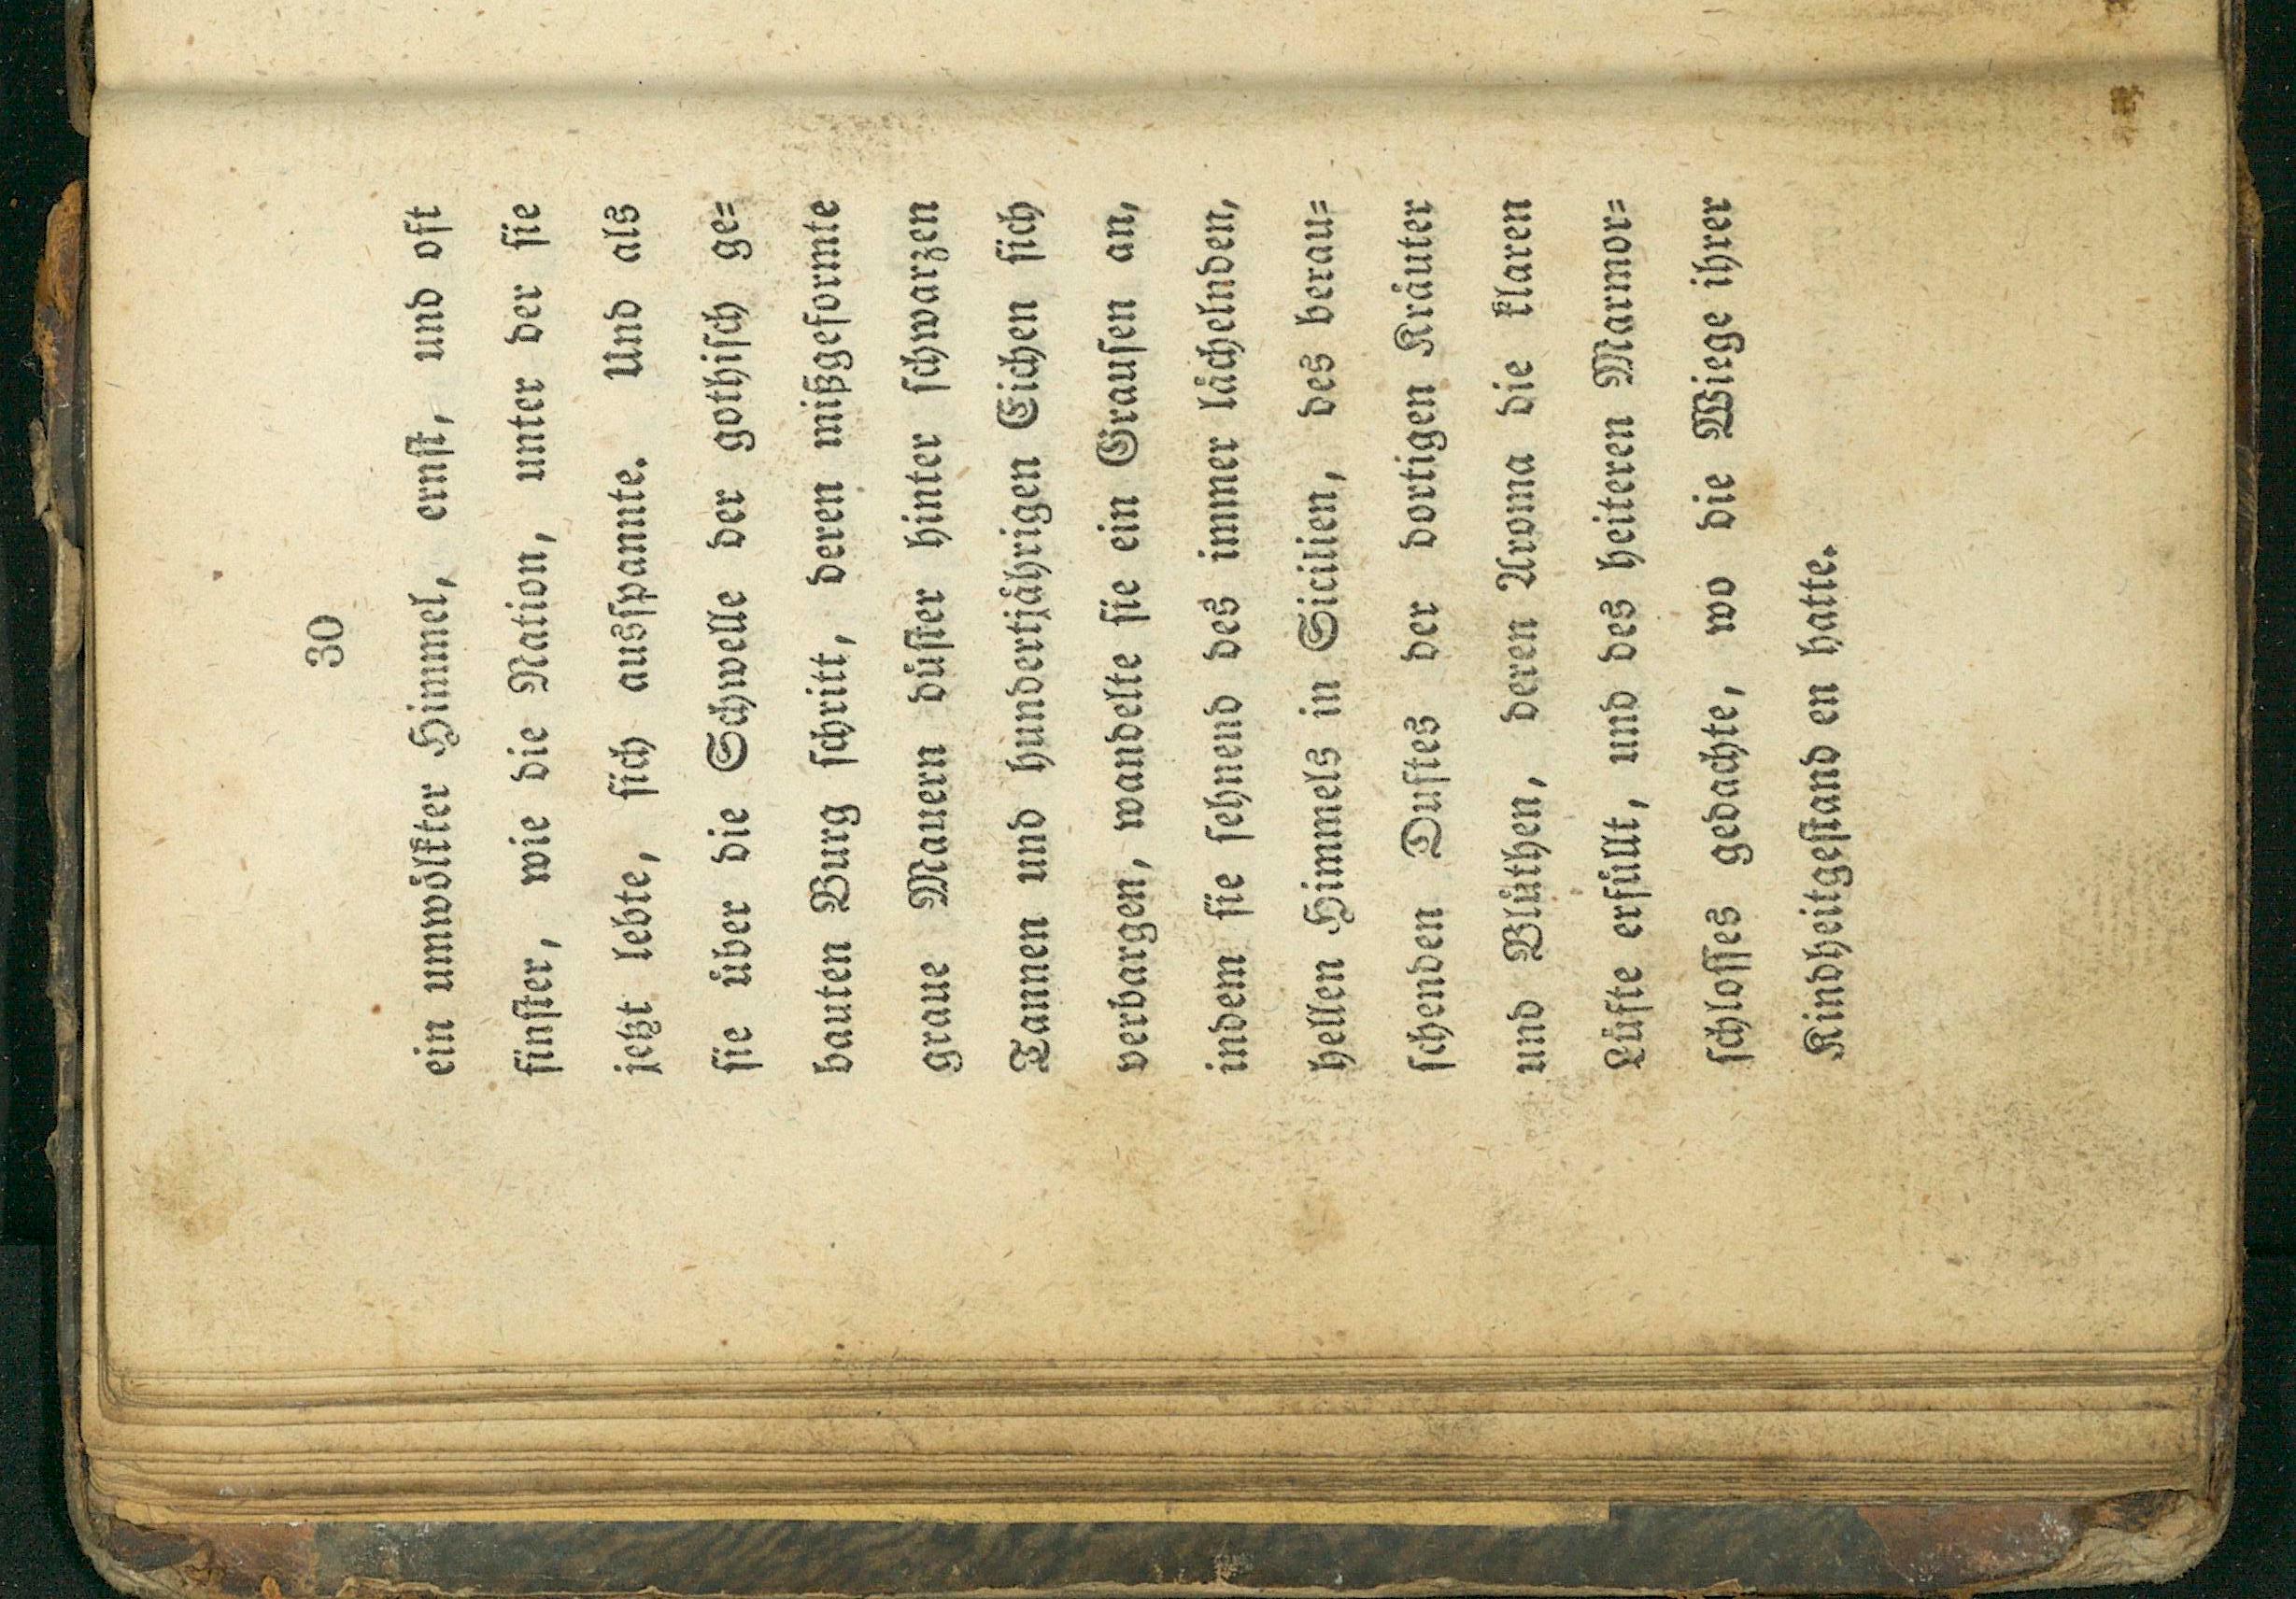 30
ein umwölkter Himmel, ernſt, und oft
finſter, wie die Nation, unter der ſie
jetzt lebte, ſich ausſpannte. Und als
ſie über die Schwelle der gothiſch ge=
bauten Burg ſchritt, deren mißgeformte
graue Mauern düſter hinter ſchwarzen
Tannen und hundertjährigen Eichen ſich
verbargen, wandelte ſie ein Grauſen an,
indem ſie ſehnend des immer lächelnden,
hellen Himmels in Sicilien, des berau=
ſchenden Duftes der dortigen Kräuter
und Blüthen, deren Aroma die klaren
Lüfte erfüllt, und des heiteren Marmor=
ſchloſſes gedachte, wo die Wiege ihrer
Kindheitgeſtand en hatte.